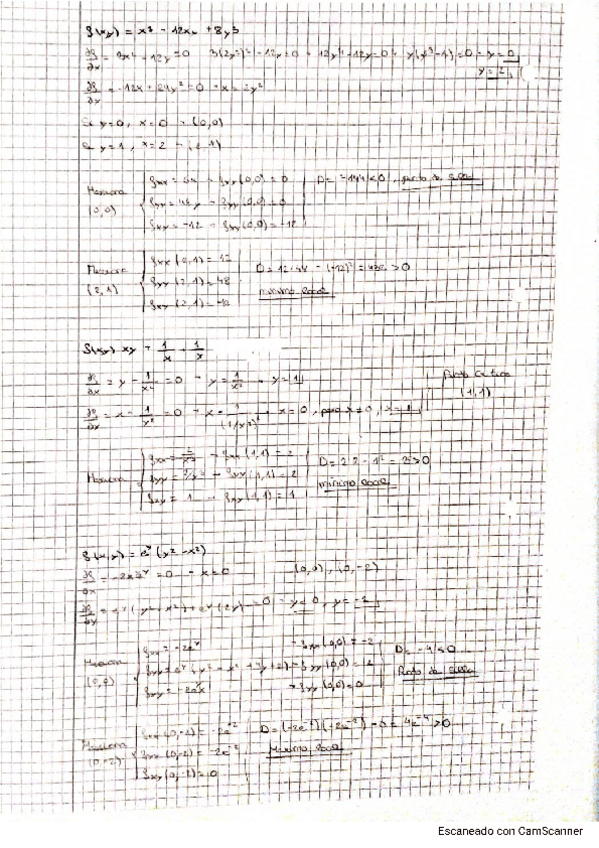 f(x,y) = x³ - 12x + 8y³
= 3x² + 12y = 0 3(2y²)² - 12y = 0 12y⁴ - 12y = 0 y(y³-1) = 0 - y = 0
y = 1
= -12x + 24y² = 0 - x = 2y²
Si y=0, x=0 - (0,0)
Si y=1, x=2 - (2,1)
Hessiana
(0,0)
fxx = 6x - fxx(0,0) = 0
fyy = 48y - fyy(0,0) = 0
fxy = -12 - fxy(0,0) = -12
D = -144 < 0, punto de silla
Hessiana
(2,1)
fxx (2,1) = 12
fyy (2,1) = 48
fxy (2,1) = -12
D = 12·48 - (-12)² = 432 > 0
mínimo local
f(x,y) = xy + 1/x + 1/y
= y - 1/x² = 0 - y = 1/x², y = 1
Punto crítico
(1,1)
= x - 1/y² = 0 - x = x = 0, para x ≠ 0, x = 1
Hessiana
fxx = - fxx (1,1) = 2
fyy = 2/y³ - fyy (1,1) = 2
fxy = 1 - fxy (1,1) = 1
D = 2·2 - 1² = 3 > 0
mínimo local
f(x,y) = eʸ (y² - x²)
= -2xeʸ = 0 - x = 0
(0,0), (0,-2)
= eʸ (y² - x²) + eʸ (2y) = 0 - y = 0, y = -2
Hessiana
(0,0)
fxx = -2eʸ
fyy = eʸ (y² - x² + 4y + 2)
fxy = -2eʸx
- fxx (0,0) = -2
- fyy (0,0) = 2
- fxy (0,0) = 0
D = -4 < 0
Punto de silla
Hessiana
(0,-2)
fxx (0,-2) = -2e⁻²
fyy (0,-2) = -2e⁻²
fxy (0,-2) = 0
D = (-2e⁻²)(-2e⁻²) - 0 = 4e⁻⁴ > 0
Máximo local
Escaneado con CamScanner